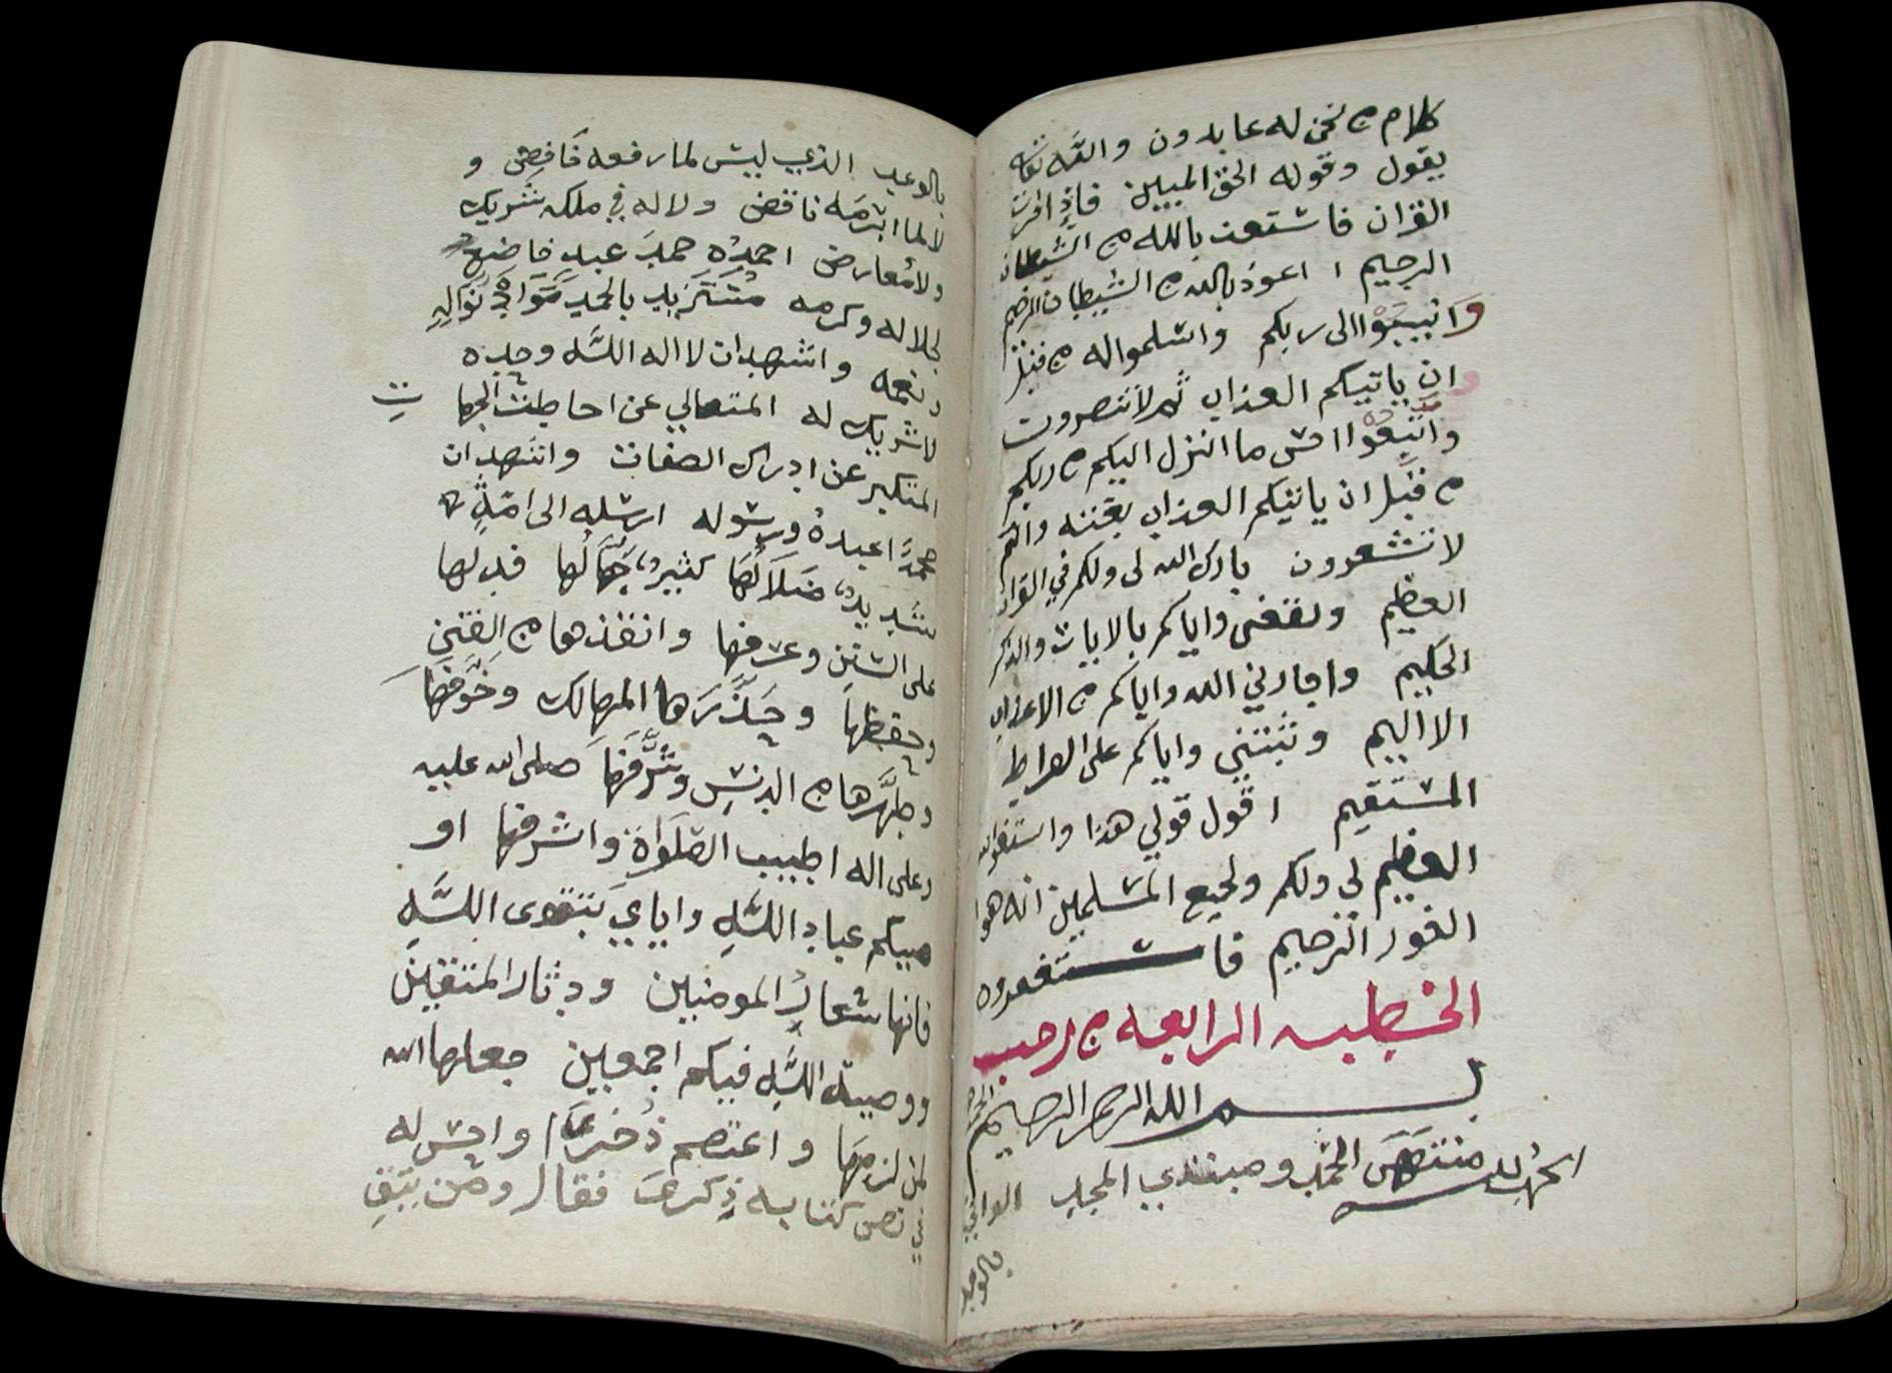 كلام من نحن له عابدون والله تعالى
يقول وقوله الحق المبين فإذا قرات
القران فاستعذ بالله من الشيطان
الرجيم اعوذ بالله من الشيطان الرجيم
وانيبوا الى ربكم واسلموا له من قبل
ان ياتيكم العذاب ثم لا تنصرون
واتبعوا احسن ما انزل اليكم من ربكم
من قبل ان ياتيكم العذاب بغتته وانتم
لا تشعرون بارك الله لى ولكم في القران
العظيم ونفعنى واياكم بالايات والذكر
الحكيم واجارني الله واياكم من الاعذاب
الااليم وثبتني واياكم على الصراط
المستقيم اقول قولي هذا واستغفر الله
العظيم لي ولكم ولجميع المسلمين انه هوا
الغفور الرحيم فاستغفروه
الخطبه الرابعه من رجب
بسم الله الرحمن الرحيم
الحمد لله منتهى الحمد ومبتدي المجد الوافي
بالوعد
بالوعيد الذي ليس لما رفعه خافض و
لا لما ابرمه ناقض ولا له في ملكه شريك
ولا معارض احمده حمد عبد خاضع
لجلاله وكرمه مستزيد بالحمد نواله
ونعمه واشهد ان لا اله الا الله وحده
لا شريك له المتعالي عن احاطت الجهات
المتكبر عن ادراك الصفات واشهد ان
محمدا عبده ورسوله ارسله الى امة
شديد ضلالها كثير جهالها فدلها
على السنن وعرفها وانقذها من الفتن
وحفظها وحذرها المهالك وخوفها
وطهرها من الدنس وشرفها صلى الله عليه
وعلى اله اطيب الصلواة واشرفها او
صيكم عباد الله واياي بتقوى الله
فانها شعار المومنين ودثار المتقين
ووصية الله فيكم اجمعين جعلها الله
لمن لزمها واعتصم ذخرا واحسن له
في نص كتابه ذكرى فقال ومن يتق